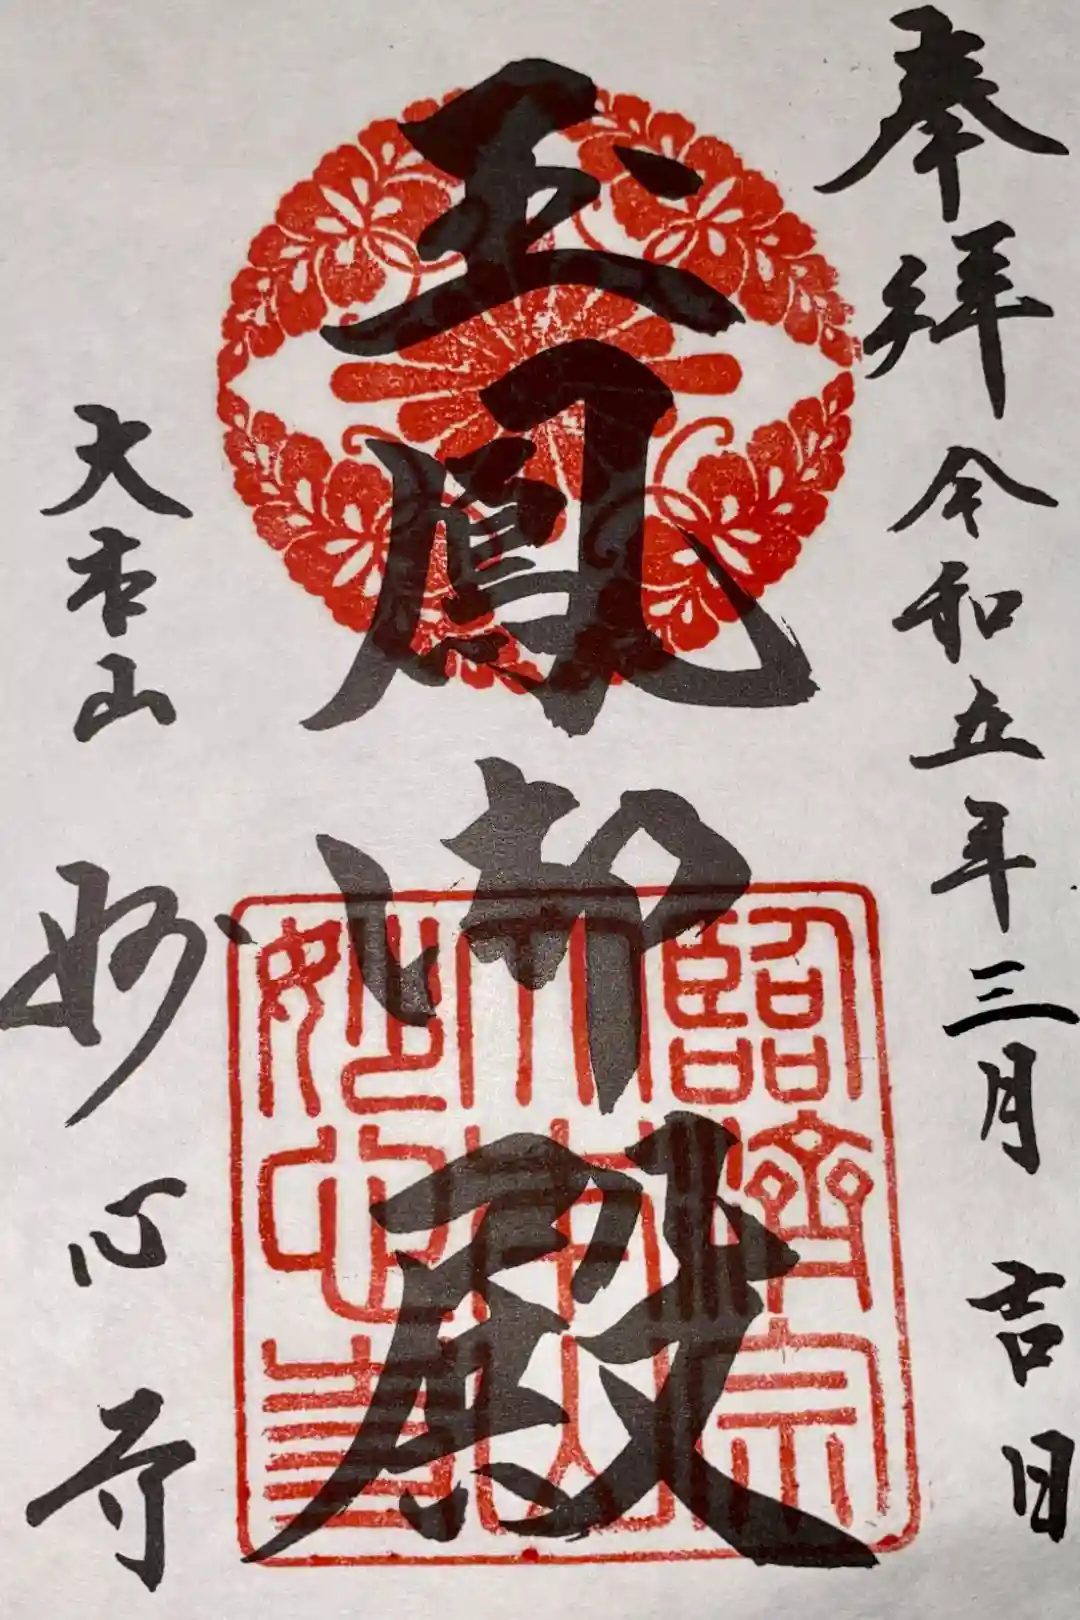 奉拝 令和五年三月吉日
玉鳳御殿
大本山 妙心寺
臨濟宗
大本山